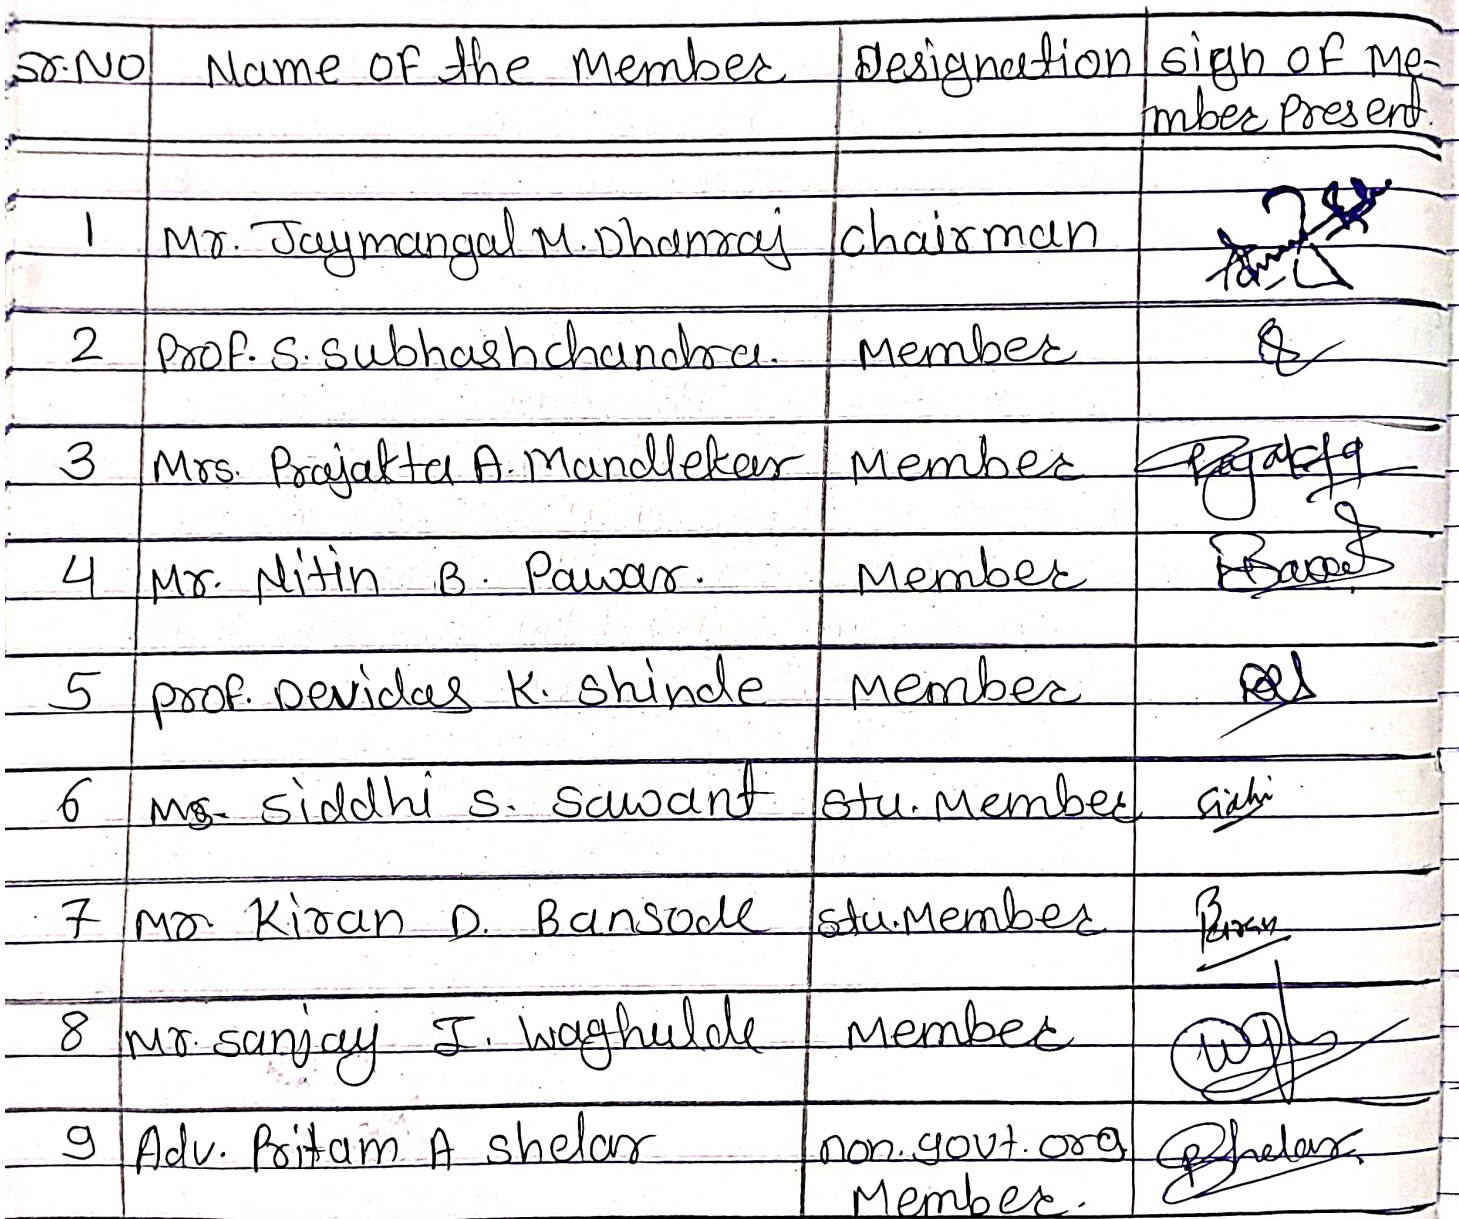 Sr.No Name of the Member Designation sign of Me-
mber Present.
1 Mr. Jaymangal M. Dhanraj chairman
2 Prof. S. Subhashchandra. Member
3 Mrs. Prajakta A. Mandlekar Member Prajakta
4 Mr. Nitin B. Pawar. Member
5 prof. Devidas K. Shinde Member
6 Ms. Siddhi S. Sawant stu. Member
7 Mr. Kiran D. Bansode stu. Member Kiran
8 Mr. Sanjay I. Waghulde Member
9 Adv. Pritam A Shelar non. govt. org PShelar
Member.